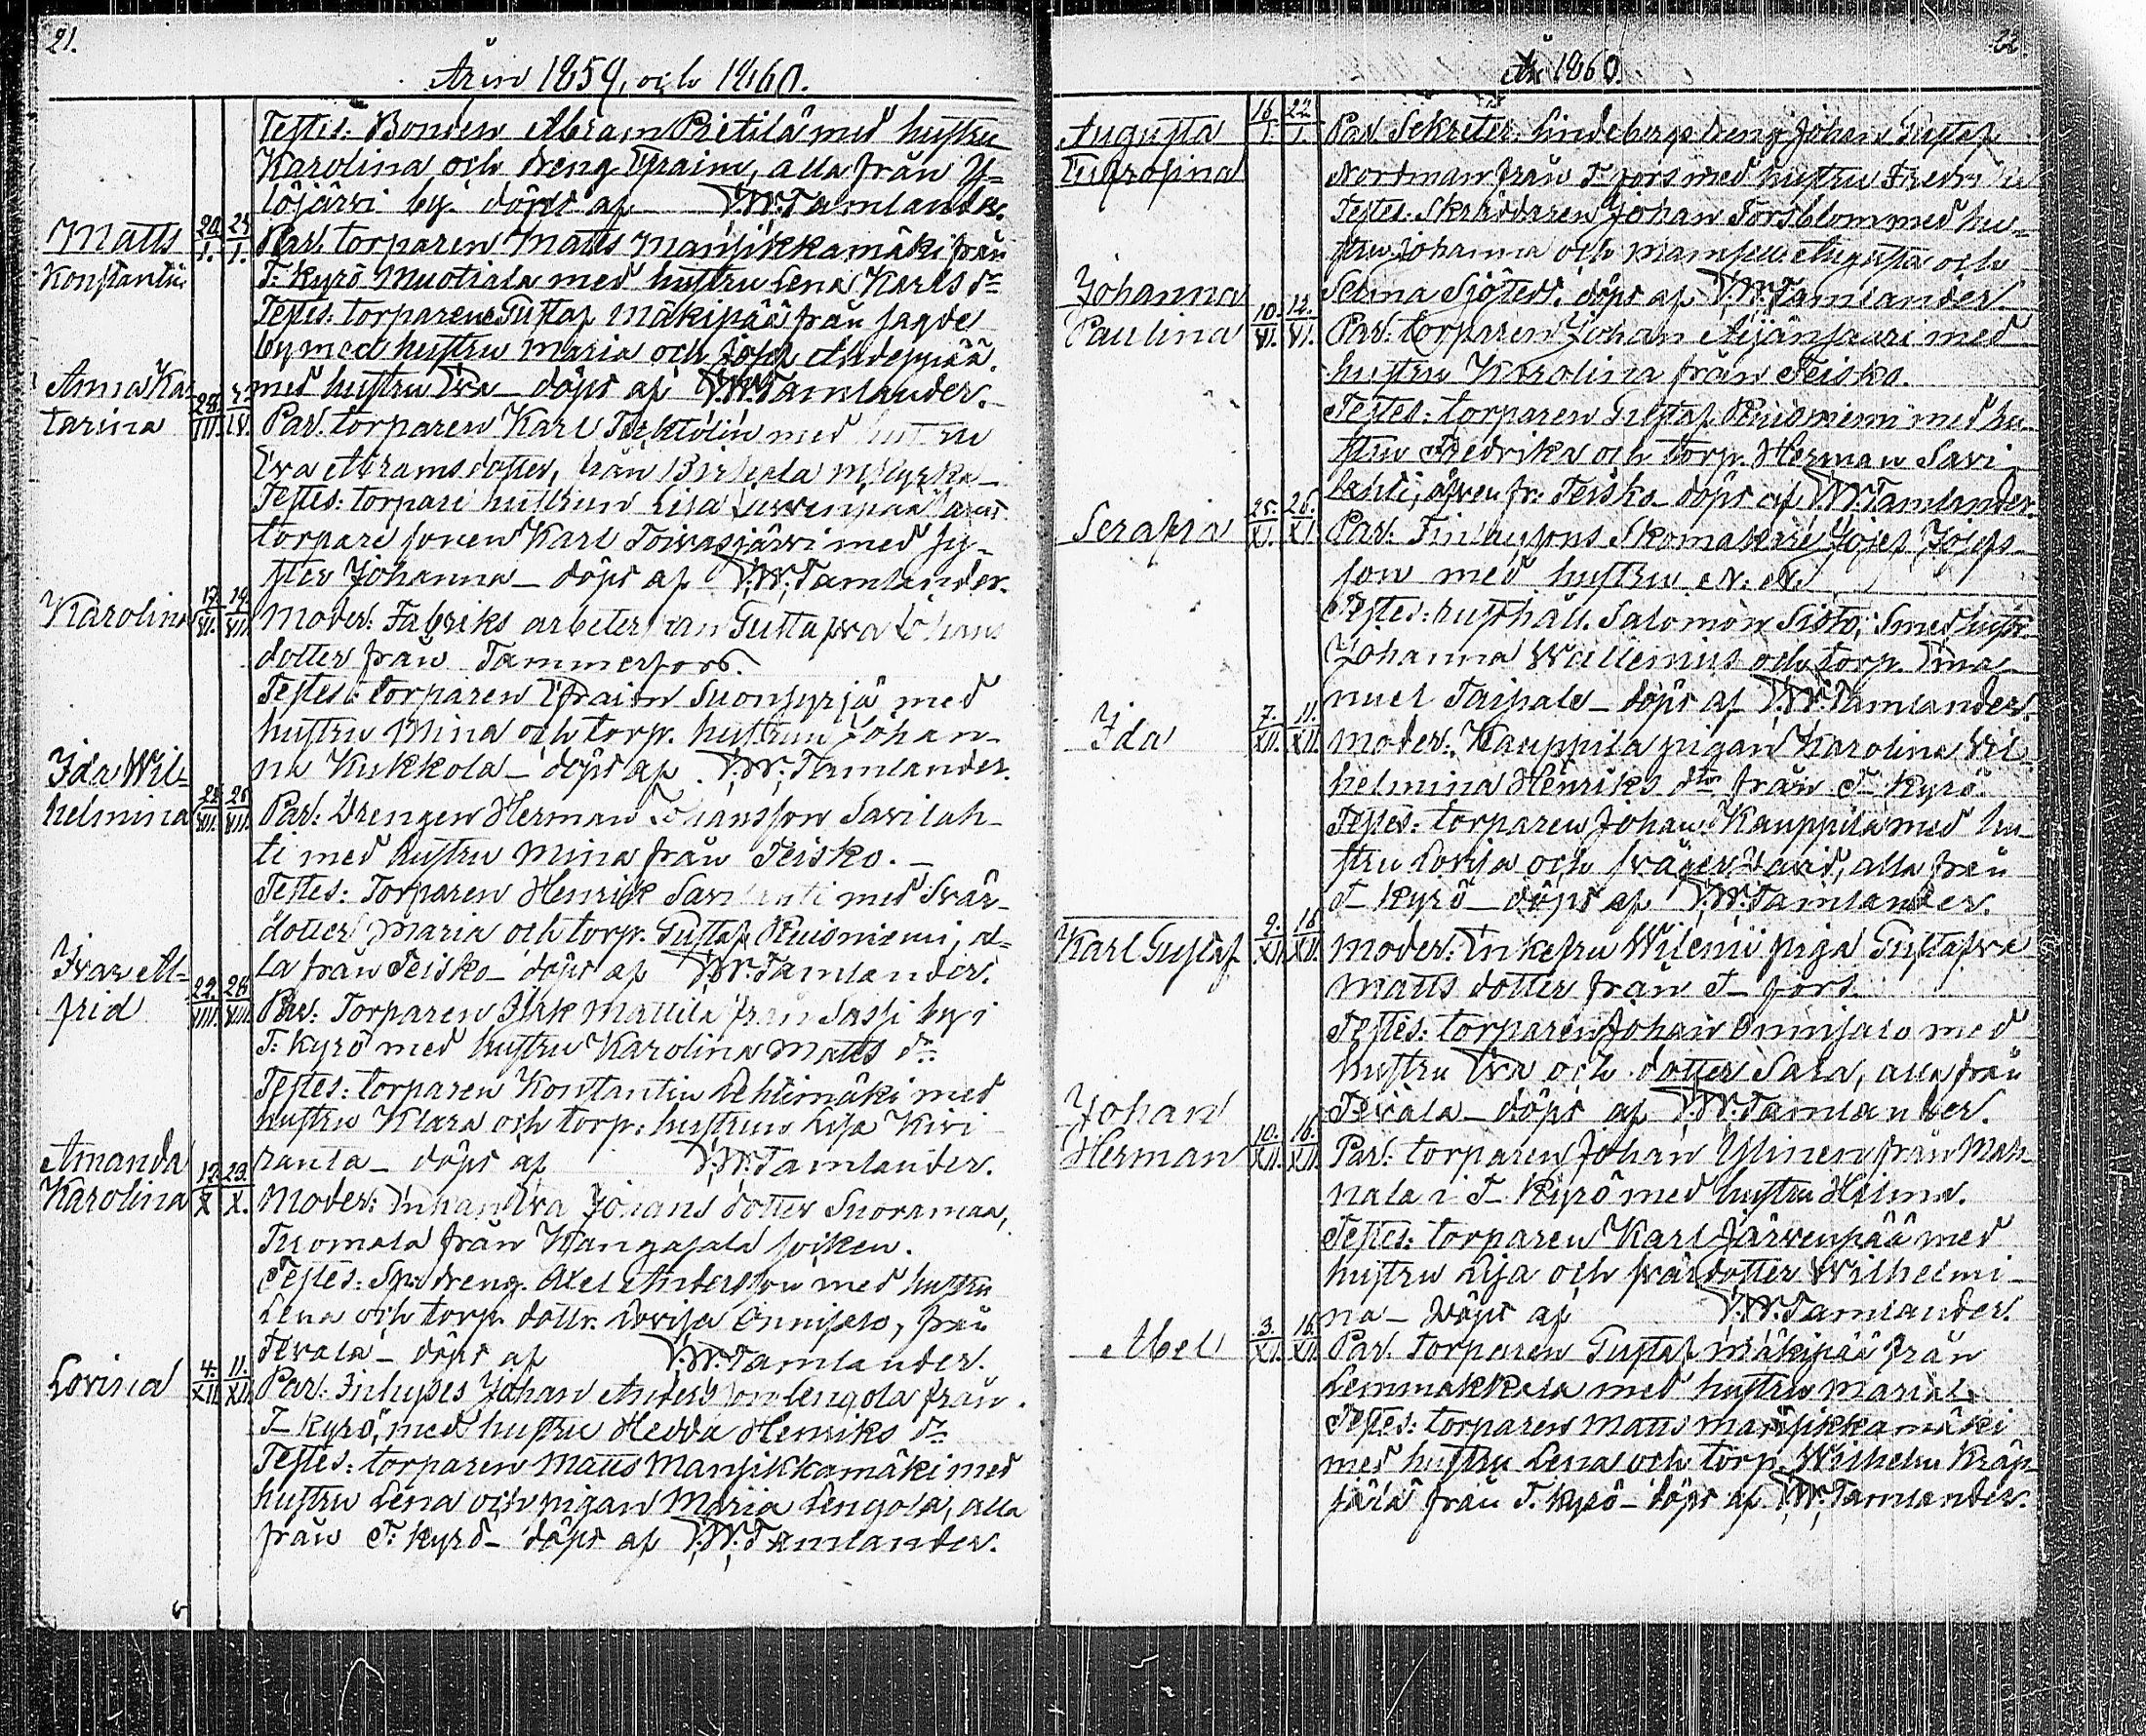 21.
Åren 1859, och 1860.
Testes: Bonden Abram Pietilä med hustru
Karolina och dreng Efraim, alla från Y=
löjärvi by. döpt af V.W. Tamlander.
Matts Konstantin 20/I. 25/I. Par. torparen Matts Mansikkamäki från
T: Kyrö Muotiala med hustru Lena Karls dr
Testes: torparene Gustaf Mäkipää från sagde
by med hustru Maria och Josef
Anna Katarina med hustru Eva – döpt af V.W. Tamlander.
28/III. /IV. Par. torparen Karl med hustru
Eva Abramsdotter, från Birkala m. kyrka
Testes: torpare hustrun Lisa samt
torpare sonen Karl Toivasjärvi med sy-
ster Johanna – döpt af V.W. Tamlander.
Karolina 17/VI. 19/VII. Moder: Fabriks arbeterskan Gustafva Johans
dotter från Tammerfors.
Testes: torparen Efraim Suonsyrjä med
hustru Mina och torp. hustrun Johan-
na Kukkola – döpt af V.W. Tamlander.
Ida Wil=
helmina 25/VII. 26/VII. Par: Drengen Herman Johansson Savilah-
ti med hustru Mina från Teisko. –
Testes: Torparen Henrik Savilahti med Svär-
dotter Maria och torp. Gustaf Ruisniemi, al-
la från Teisko – döpt af V.W. Tamlander.
Ivar Al-
frid 22/VIII. 26/VIII. Par: Torparen Isak Mattila från Sassi by i
T: Kyrö med hustru Karolina Matts dr:
Testes: torparen Konstantin Lehtimäki med
hustru Klara och torp: hustrun Lisa Kivi
ranta – döpt af V.W. Tamlander.
Amanda
Karolina 17/X 29/X. Moder: Enkan Eva Johans dotter Suoramaa,
Tuomala från Kangasala socken.
Testes: Sp: dreng. Axel Andersson med hustru
Lena och torp. dottr. Lovisa Onnisalo, från
Tevala – döpt af V.W. Tamlander.
Lovina 4./XII. 11./XII. Par: Inhyses Johan Andersson Lengola från
T– Kyrö, med hustru Hedda Henriks dr
Testes: torparen Matts Mansikkamäki med
hustru Lena och pigan Maria Lengola, alla
från T: Kyrö – döpt af V.W. Tamlander.
22
År 1860.
Augusta 16/I. 22/I. Par. Sekreter. Lindebergs dreng Johan Gustaf
Eufrosina Nordman från T–fors med hustru Fredrika
Testes: Skräddaren Johan Forsblom med hu-
stru Johanna och mamsell Augusta och
Johanna Selma Sjöstedt. döpt af V.W. Tamlander
Paulina 10./VI. 12./VI. Par: torparen Johan Äijänsaari med
hustru Karolina från Teisko.
Testes: torparen Gustaf Ruisniemi med hu-
stru Fredrika och torp. Herman Savi-
lahti, äfven fr: Teisko – döpt af V.W. Tamlander.
Serafia 25./XI. 26./XI. Par: Finlaysons Skomakare Josef Josefs-
son med hustru N. N.
Testes: rusthåll. Salomon Sisto; Smed hustr.
Johanna Wallenius och torp. Ema-
nuel Taipale – döpt af V.W. Tamlander.
Ida 7./XII. 11./XII. Moder: Kauppila pigan Karolina Wil
helmina Henriks dtr från T– Kyrö.
Testes: torparen Johan Kauppila med hu-
stru Lovisa och svåger David, alla från
T– Kyrö – döpt af V.W. Tamlander.
Karl Gustaf 9./XII. 16/XII. Moder: Enkefru Wilemi piga Gustafva
Matts dotter från T– fors.
Testes: torparen Johan Onnisalo med
hustru Eva och dotter Sara, alla från
Johan Tevala – döpt af V.W. Tamlander.
Herman 10./XII. 16./XII. Par: torparen Johan Ylinen från Mah-
nala i T– Kyrö med hustru Helena.
Testes: torparen Karl Järvenpää med
hustru Lisa och svärdotter Wilhelmi-
na – döpt af V.W. Tamlander.
Abel 3./XII. 16./XII. Par. Torparen Gustaf Mäkipää från
Lemmakkala med hustru Maria.
Testes: torparen Matts Mansikkamäki
med hustru Lena och torp. Wilhelm
från T. Kyrö – döpt af V.W. Tamlander.